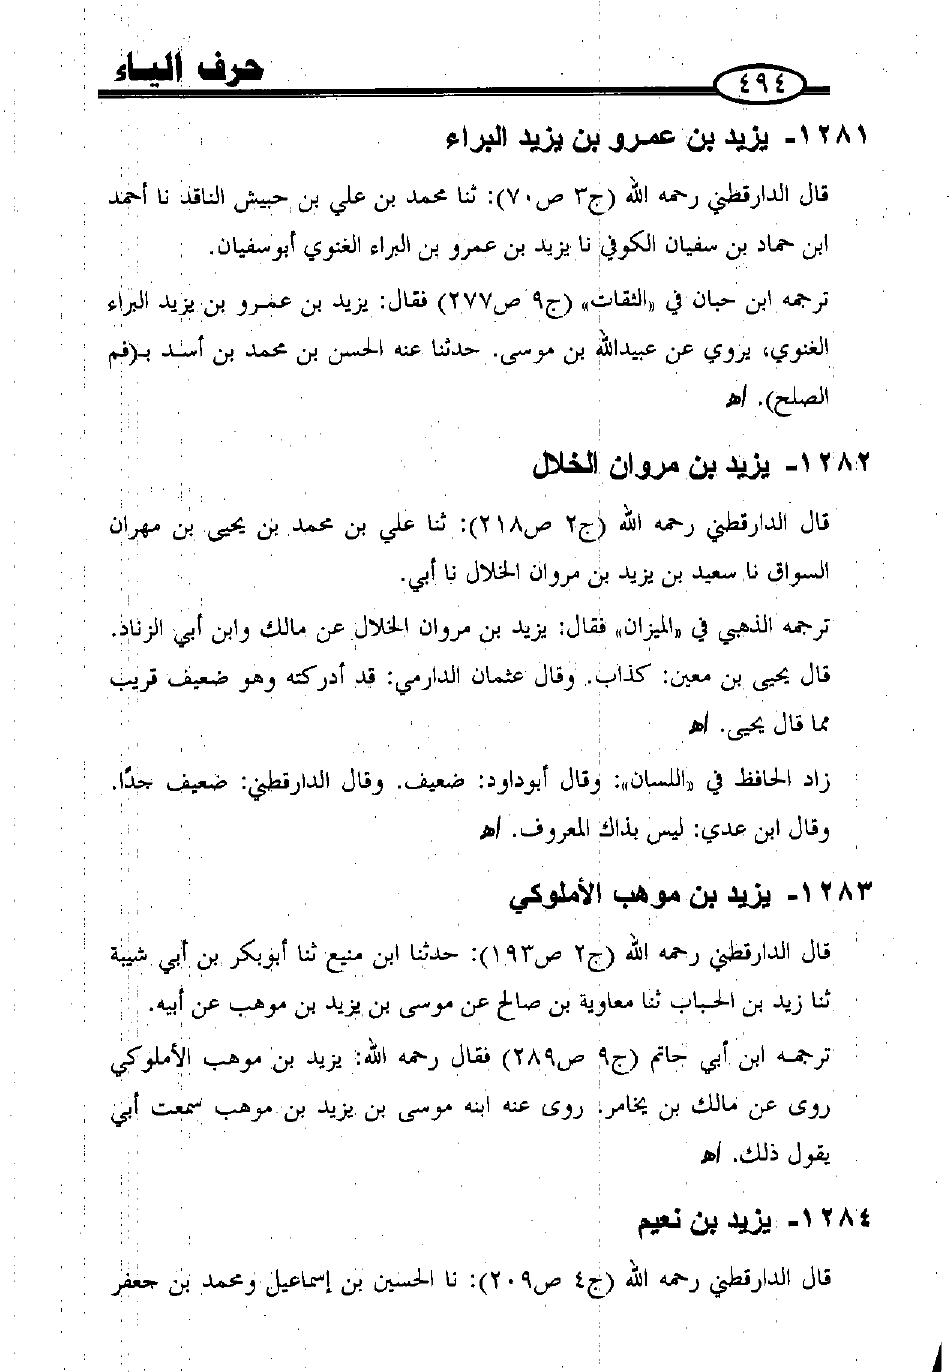 حرف الياء
٤٩٤
١٢٨١- يزيد بن عمرو بن يزيد البراء
قال الدارقطني رحمه الله (ج٣ ص٧٠): ثنا محمد بن علي بن حبيش الناقد نا أحمد
ابن حماد بن سفيان الكوفي نا يزيد بن عمرو بن البراء الغنوي أبوسفيان.
ترجمه ابن حبان في «الثقات» (ج٩ ص٢٧٧) فقال: يزيد بن عمرو بن يزيد البراء
الغنوي، يروي عن عبيدالله بن موسى. حدثنا عنه الحسن بن محمد بن أسد بـ(فم
الصلح). اﻫ
١٢٨٢- يزيد بن مروان الخلال
قال الدارقطني رحمه الله (ج٢ ص٢١٨): ثنا علي بن محمد بن يحيى بن مهران
السواق نا سعيد بن يزيد بن مروان الخلال نا أبي.
ترجمه الذهبي في «الميزان» فقال: يزيد بن مروان الخلال عن مالك وابن أبي الزناد.
قال يحيى بن معين: كذاب. وقال عثمان الدارمي: قد أدركته وهو ضعيف قريب
مما قال يحيى. اﻫ
زاد الحافظ في «اللسان»: وقال أبوداود: ضعيف. وقال الدارقطني: ضعيف جدًا.
وقال ابن عدي: ليس بذاك المعروف. اﻫ
١٢٨٣- يزيد بن موهب الأملوكي
قال الدارقطني رحمه الله (ج٢ ص١٩٣): حدثنا ابن منيع ثنا أبوبكر بن أبي شيبة
ثنا زيد بن الحباب ثنا معاوية بن صالح عن موسى بن يزيد بن موهب عن أبيه.
ترجمه ابن أبي حاتم (ج٩ ص٢٨٩) فقال رحمه الله: يزيد بن موهب الأملوكي
روى عن مالك بن يخامر. روى عنه ابنه موسى بن يزيد بن موهب سمعت أبي
يقول ذلك. اﻫ
١٢٨٤- يزيد بن نعيم
قال الدارقطني رحمه الله (ج٤ ص٢٠٩): نا الحسين بن إسماعيل ومحمد بن جعفر